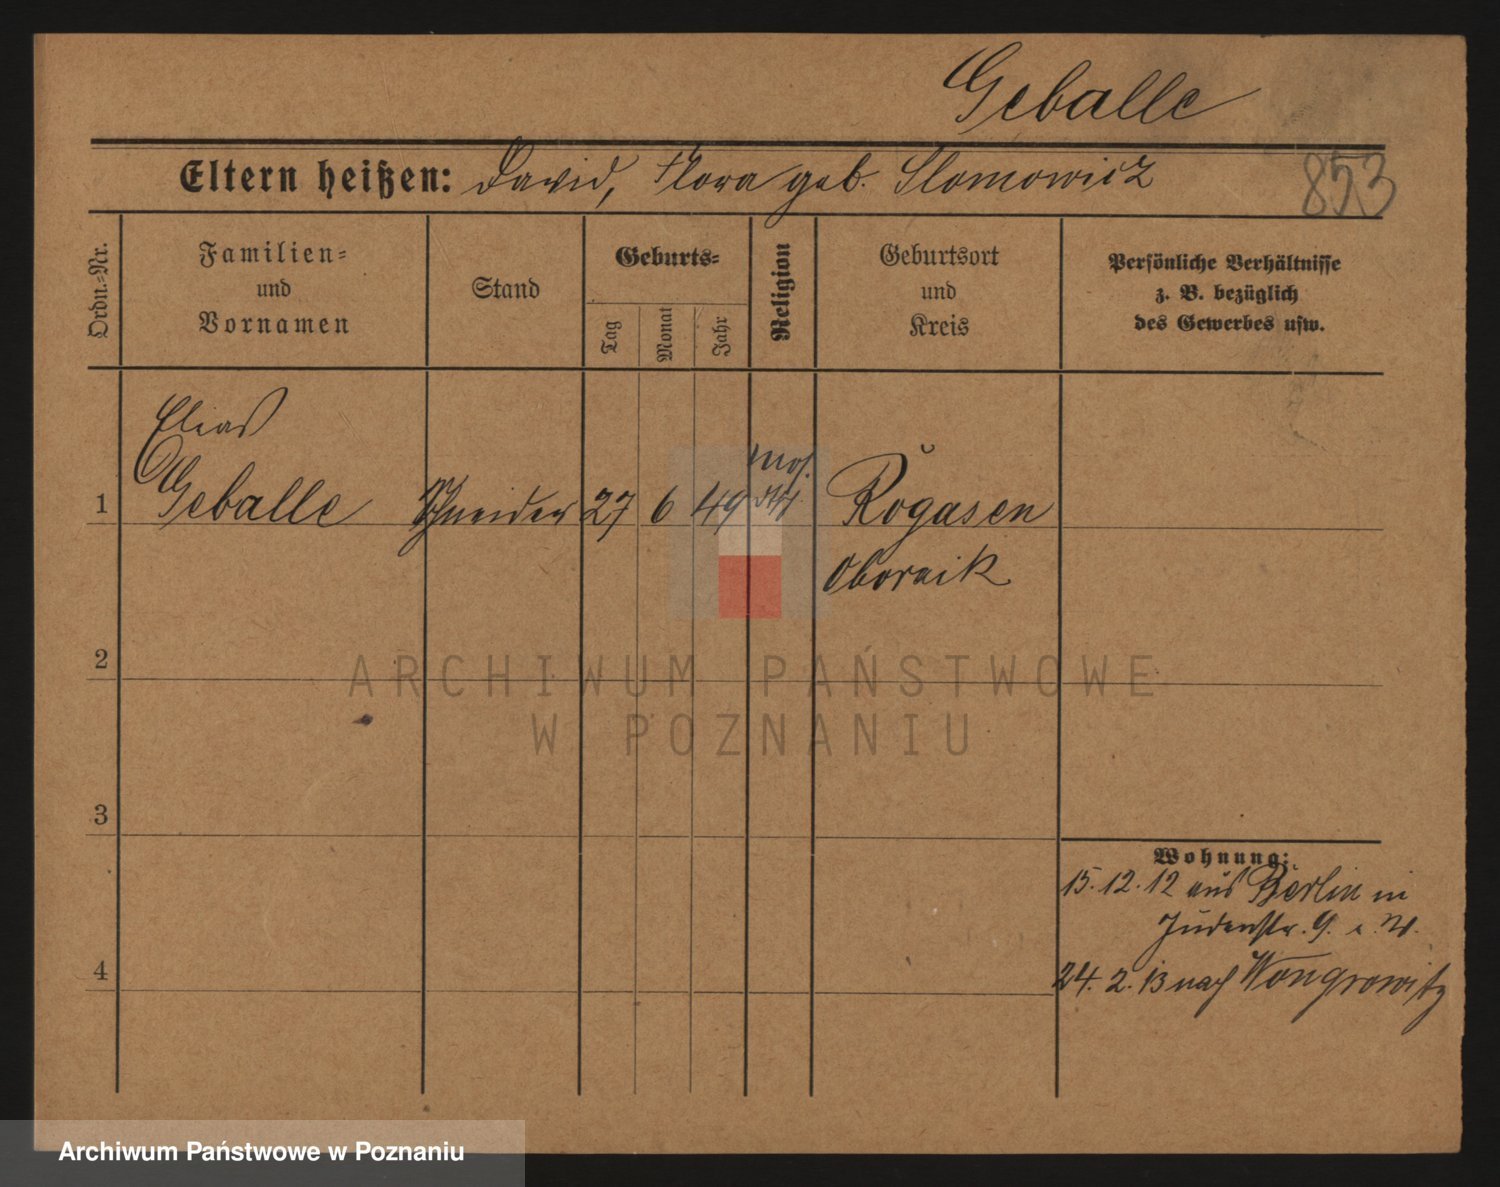 Geballe
Eltern heißen: David, Flora geb. Slomowicz
853
Ordn.-Nr.
Familien-
und
Vornamen
Stand
Geburts-
Tag
Monat
Jahr
Religion
Geburtsort
und
Kreis
Persönliche Verhältnisse
z. B. bezüglich
des Gewerbes usw.
Elias
1 Geballe Schneider 27 6 49 mos. Rogasen
Obornik
2
3
4
Wohnung:
15.12.12 aus Berlin in
Judenstr. 9.
24.2.13 nach Wongrowitz
ARCHIWUM PAŃSTWOWE
W POZNANIU
Archiwum Państwowe w Poznaniu